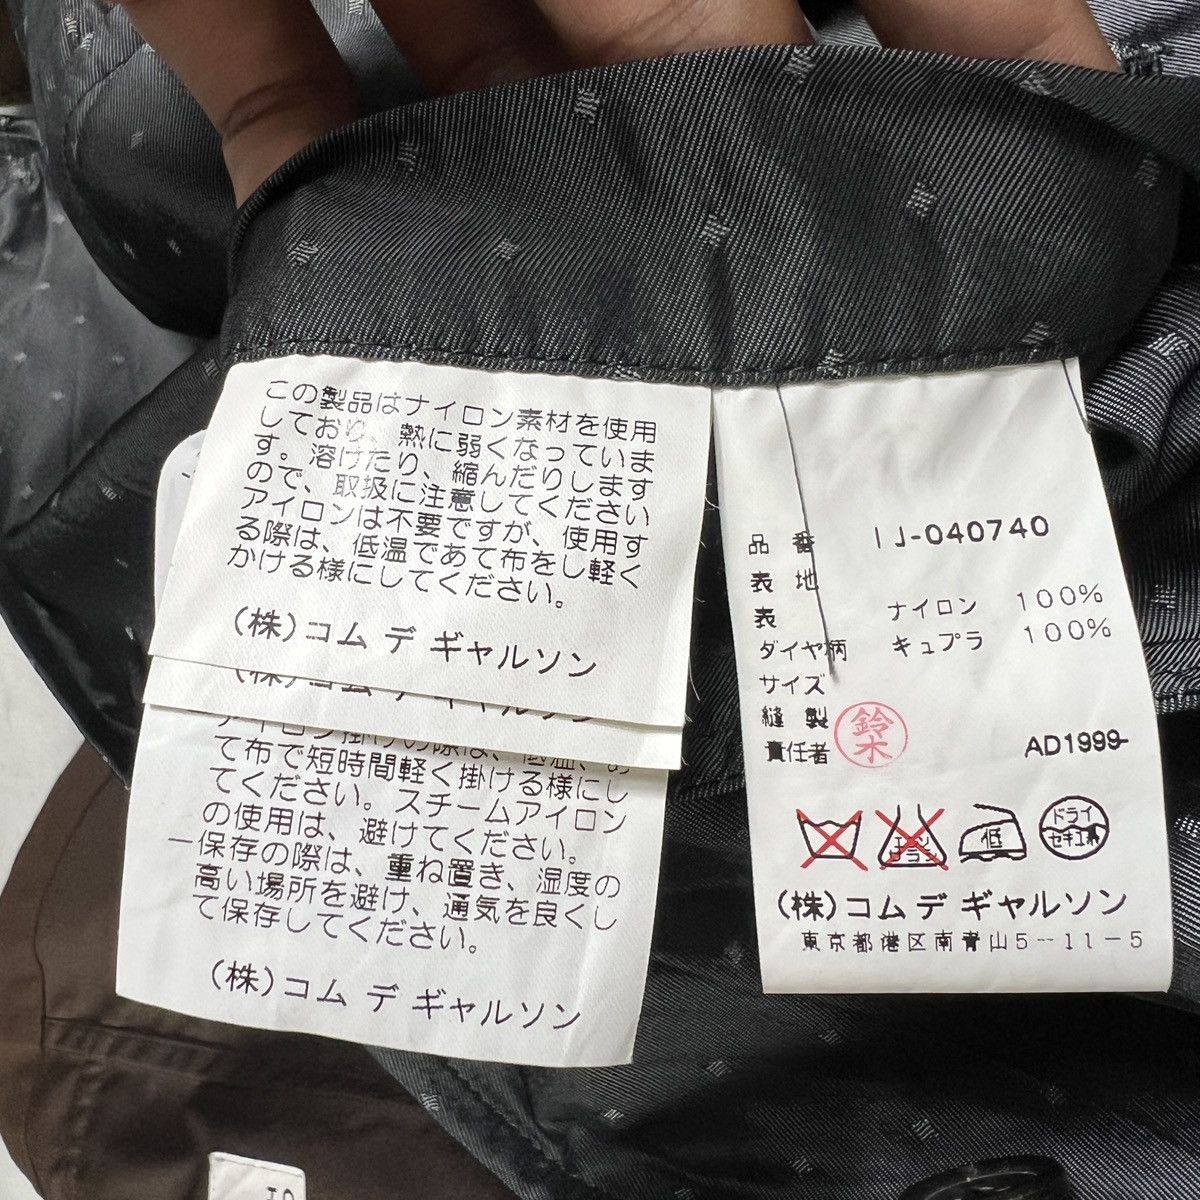 この製品はナイロン素材を使用
しており、熱に弱くなっていま
す。溶けたり、縮んだりします
ので、取扱に注意してください
アイロンは不要ですが、使用す
る際は、低温であて布をし軽く
かける様にしてください。
(株)コム デ ギャルソン
(株)コム デ ギャルソン
アイロン掛けの際は、低温、あ
て布で短時間軽く掛ける様にし
てください。スチームアイロン
の使用は、避けてください。
ー保存の際は、重ね置き、湿度の
高い場所を避け、通気を良くし
て保存してください。
(株)コム デ ギャルソン
品番 IJ-040740
表地
表 ナイロン 100%
ダイヤ柄 キュプラ 100%
サイズ
縫製
責任者 鈴木 AD1999
エンソ
サラシ
低
ドライ
セキユ系
(株)コム デ ギャルソン
東京都港区南青山5-11-5